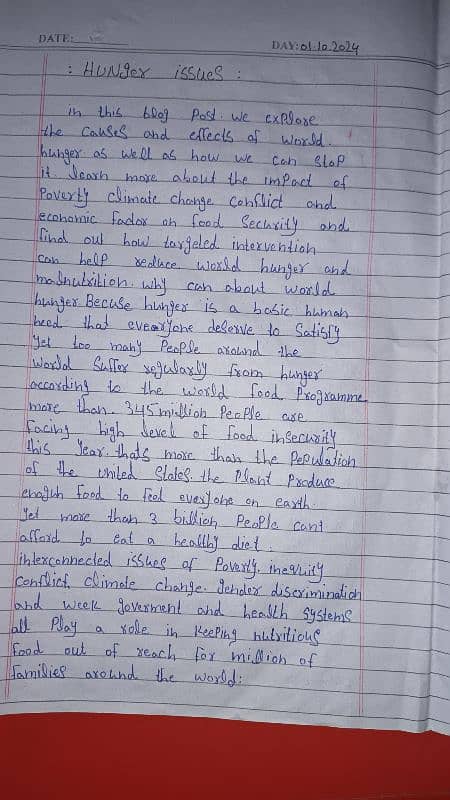 DATE:
DAY:01.10.2024
: HUNger issues :
in this blog Post. we explore
the causes and effects of world.
hunger as well as how we can stop
it. learn more about the impact of
Poverty climate change conflict and
economic factor on food Security and
find out how targeted intervention
can help reduce world hunger and
malnutrition. why can about world
hunger Becuse hunger is a basic human
need that everyone deserve to Satisfy
yet too many People around the
world Suffer regularly from hunger
according to the world food Programme
more than 345 million People are
facing high level of food insecurity
this Year. thats more than the Population
of the united States. the Plant Produce
enaguh food to feel everyone on earth.
Yet more than 3 billion People cant
afford to eat a healthy diet.
interconnected issues of Poverty. ineruity
conflict, climate change. Gender discrimination
and week goverment and health systems
all Play a role in keeping nutritious
food out of reach for million of
families around the world: